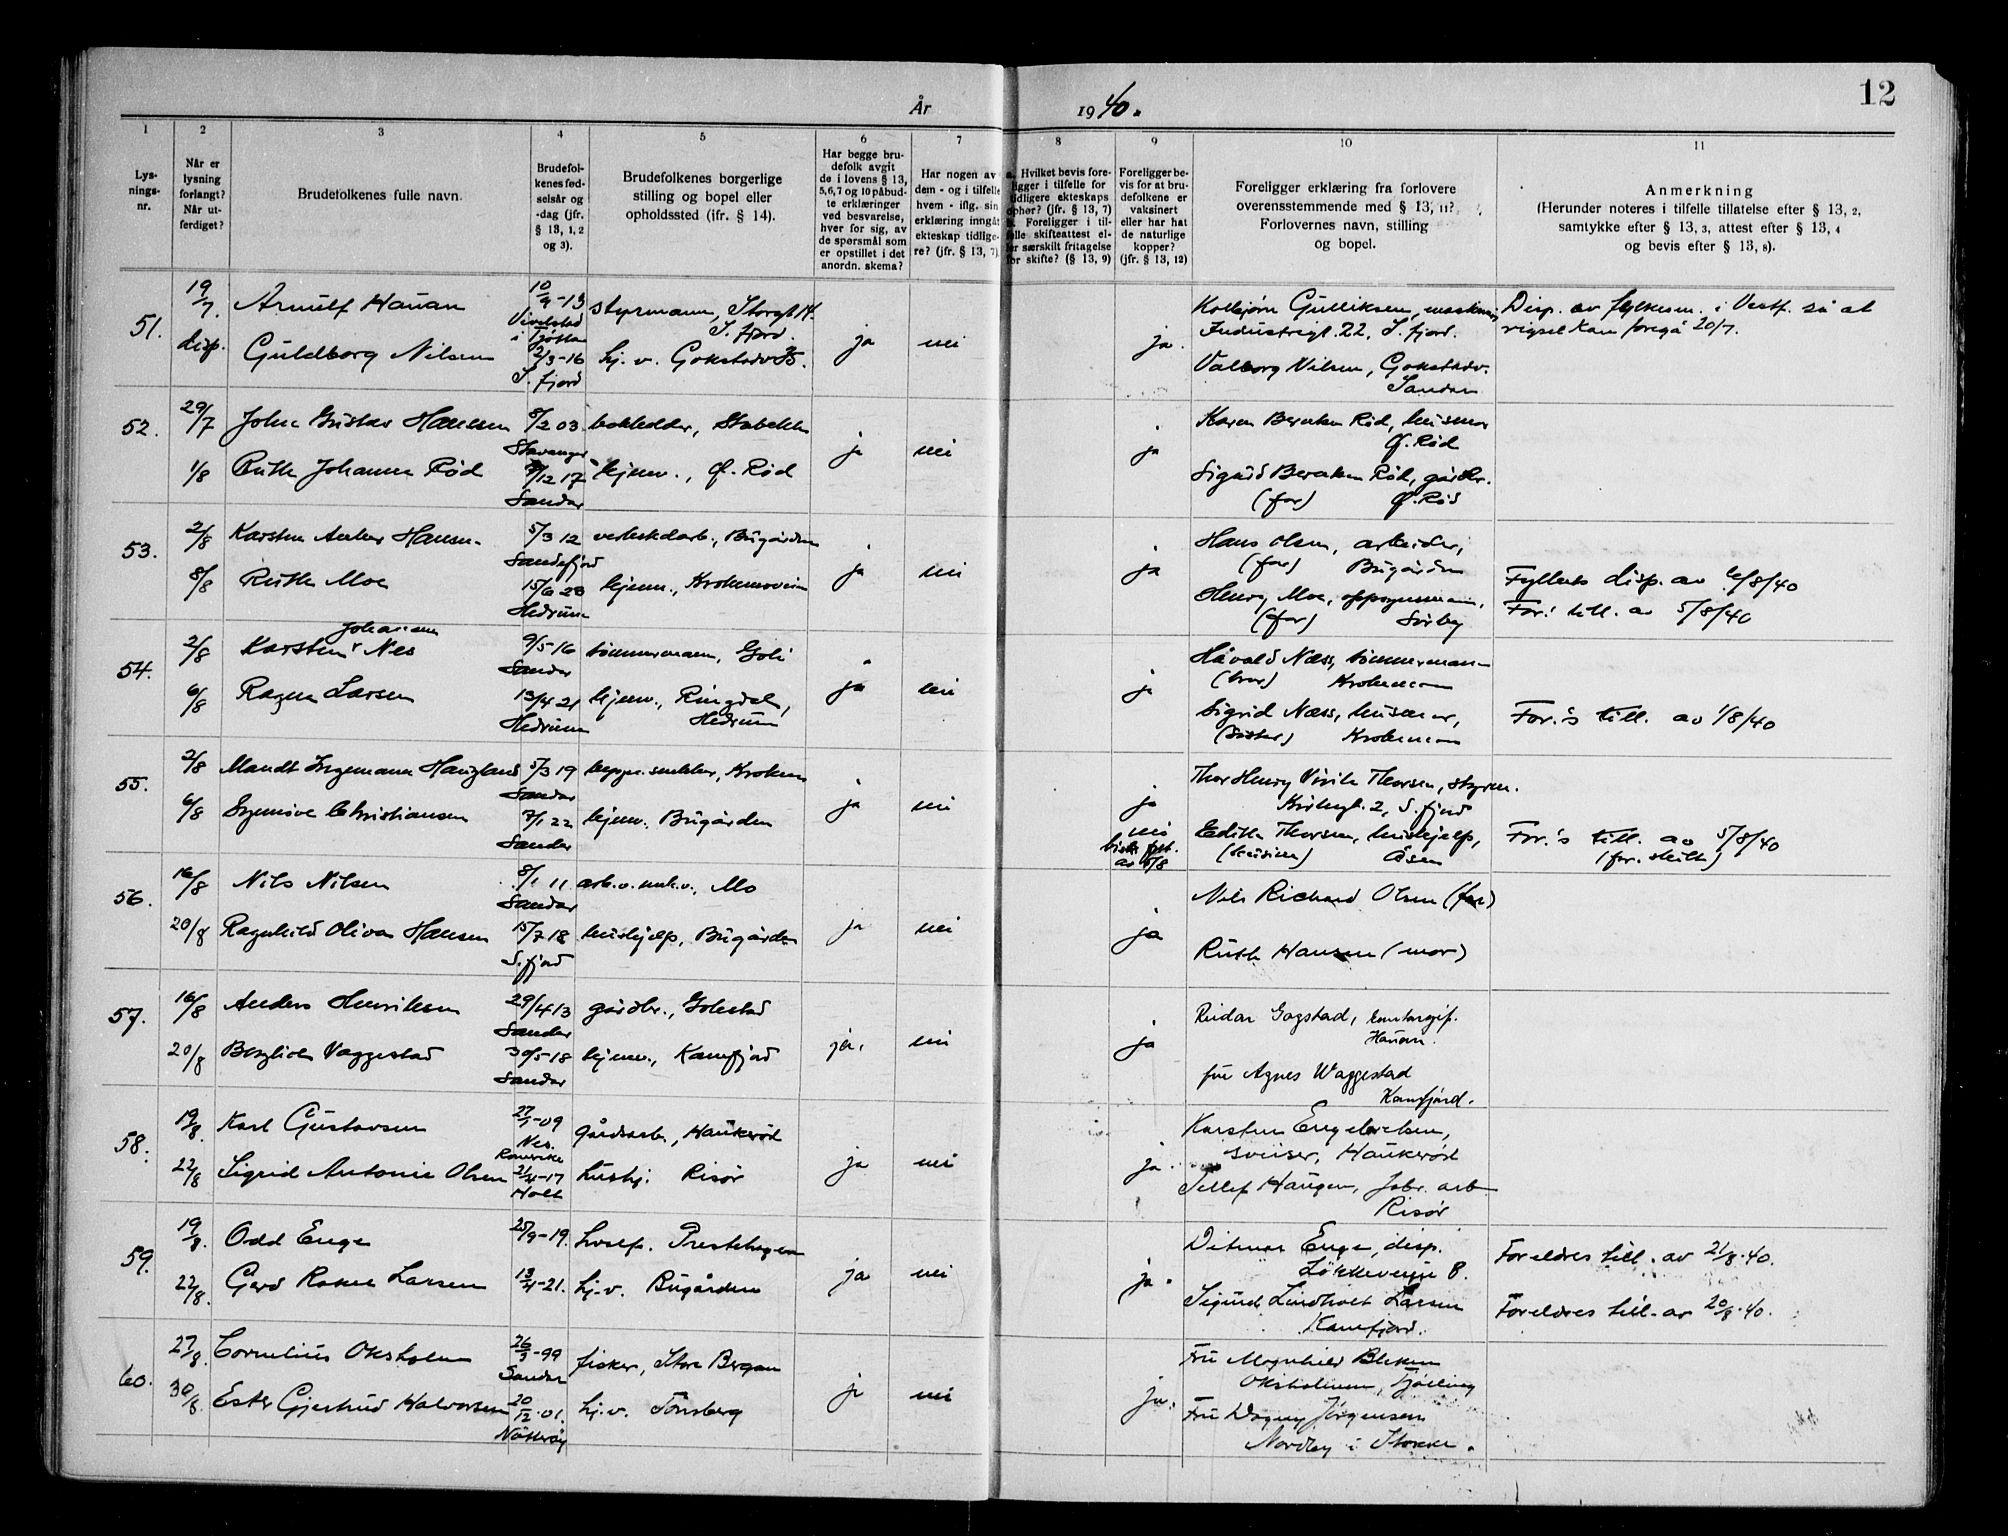 12
År 1940.
1
Lys-
nings-
nr.
2
Når er
lysning
forlangt?
Når ut-
ferdiget?
3
Brudefolkenes fulle navn.
4
Brudefol-
kenes fød-
selsår og
-dag (jfr.
§ 13, 1, 2
og 3).
5
Brudefolkenes borgerlige
stilling og bopel eller
opholdssted (ifr. § 14).
6
Har begge bru-
defolk avgit
de i lovens § 13,
5,6,7 og 10 påbud-
te erklæringer
ved besvarelse,
hver for sig, av
de spørsmål som
er opstillet i det
anordn. skema?
7
Har nogen av
dem - og i tilfelle
hvem - iflg. sin
erklæring inngåt
ekteskap tidlige-
re? (jfr. § 13, 7)
8
a. Hvilket bevis fore-
ligger i tilfelle for
tidligere ekteskaps
ophør? (jfr. § 13, 7)
b. Foreligger i til-
felle skifteattest el-
ler særskilt fritagelse
for skifte? (§ 13, 9)
9
Foreligger be-
vis for at bru-
defolkene er
vaksinert
eller har hat
de naturlige
kopper?
(jfr. § 13, 12)
10
Foreligger erklæring fra forlovere
overensstemmende med § 13, 11?
Forlovernes navn, stilling
og bopel.
11
Anmerkning
(Herunder noteres i tilfelle tillatelse efter § 13, 2,
samtykke efter § 13, 3, attest efter § 13, 4
og bevis efter § 13, 8).
51.
19/7.
disp.
Arnulf Hauan
10/9-13
i Tjøtta
styrmann, Storgt 14.
S.fjord.
Guldborg Nilsen
2/3-16
S.fjord
hj. v. Gokstadv 35.
ja
nei
ja.
Kolbjørn Gulliksen,
Industrigt. 22, S.fjord.
Valborg Nilsen, Gokstadv.
Sandar
Disp. av fylkesm. i Vestf. så at
vigsel kan foregå 20/7.
52.
29/7
1/8
John Gustav Hansen
8/2 03
Stavanger
bokholder, Stabekk
Ruth Johanne Rød
7/12 17
Sandar
hjemv., Ø. Rød
ja
nei
ja
Karen Berntsen Rød, husmor
Ø. Rød
Sigurd Berntsen Rød, gårdbr.
(far) Ø. Rød
53.
2/8
8/8
Karsten Anker Hansen
5/3 12
Sandefjord
verkstedarb., Bugården
Ruth Moe
15/6 23
Hedrum
hjemv., Krokemoveien
ja
nei
ja
Hans Olsen, arbeider,
(far) Bugården
Henry Moe, oppsynsmann,
(far) Sørby
Fylkets disp. av 6/8/40
For.s till. av 5/8/40
54.
2/8
6/8
Johannes
Karsten Nes
9/5-16
Sandar
tømmermann, Goli
Ragna Larsen
13/4 21
Hedrum
hjemv., Ringdal,
Hedrum
ja
nei
ja
Håvald Næss, tømmermann
(bror) Krokemoen
Sigrid Næss, husmor,
(søster) Krokemoen
For.'s till. av 1/8/40
55.
2/8
6/8
Mandt Ingemann Haugland
5/3 19
Sandar
Synnøve Christiansen
7/1 22
Sandar
hjemv., Bugården
ja
nei
ja
nei
av 5/8
Thor Henry Thorsen, styrm.
Kirkegt. 2, S.fjord
Edith Thorsen, hushjelp,
(kusine) Åsen
For.'s till. av 5/8/40
(for. skilt)
56.
16/8
20/8
Nils Nilsen
8/1 11
Sandar
Mo
Ragnhild Oliva Hansen
15/7 18
S.fjord
hushjelp, Bugården
ja
nei
ja
Nils Richard Olsen (far)
Ruth Hansen (mor)
57.
16/8
20/8
Anders Henriksen
29/4 13
Sandar
gårdbr., Gokstad
Bergliot Vaggestad
30/5-18
Sandar
hjemv., Kamfjord
ja.
nei
ja
Reidar Gogstad,
Hauan.
fru Agnes Waggestad
Kamfjord.
58.
19/8.
22/8
Karl Gustavsen
27/1-09
Nes.
Romerike
gårdsarb., Haukerød
Sigrid Antonie Olsen
21/4-17
Holt
hushj. Risør
ja
nei
ja.
Karsten Engebretsen,
sveiser, Haukerød
Tellef Haugen, fabr. arb
Risør
59.
19/8.
22/8.
Odd Enge
25/9-19.
Prestehagen
Gerd Larsen
13/4-21.
hj.v. Bugården
ja
nei
ja.
Ditmar Enge, disp.
8.
Sigurd Lindholt Larsen
Kamfjord.
Foreldres till. av 21/8.40.
Foreldres till. av 20/8.40.
60.
27/8.
30/8.
Cornelius Oksholm
26/3-99
Sandar
fisker, Store Bergan
Ester Gjertrud Halvorsen
20/12.01.
Nøtterøy
hj.v. Tønsberg
ja
nei
ja.
Fru Magnhild
Oksholmen, Tjølling
Fru Dagny Jørgensen
Nordby i Stokke.